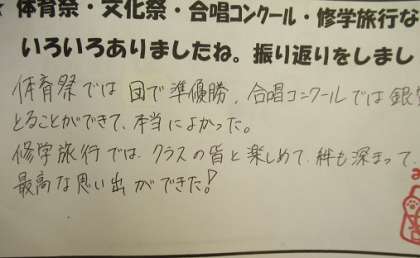 体育祭・文化祭・合唱コンクール・修学旅行な
いろいろありましたね。振り返りをしまし
体育祭では団で準優勝、合唱コンクールでは銀賞
とることができて、本当によかった。
修学旅行では、クラスの皆と楽しめて、絆も深まって、
最高な思い出ができた!